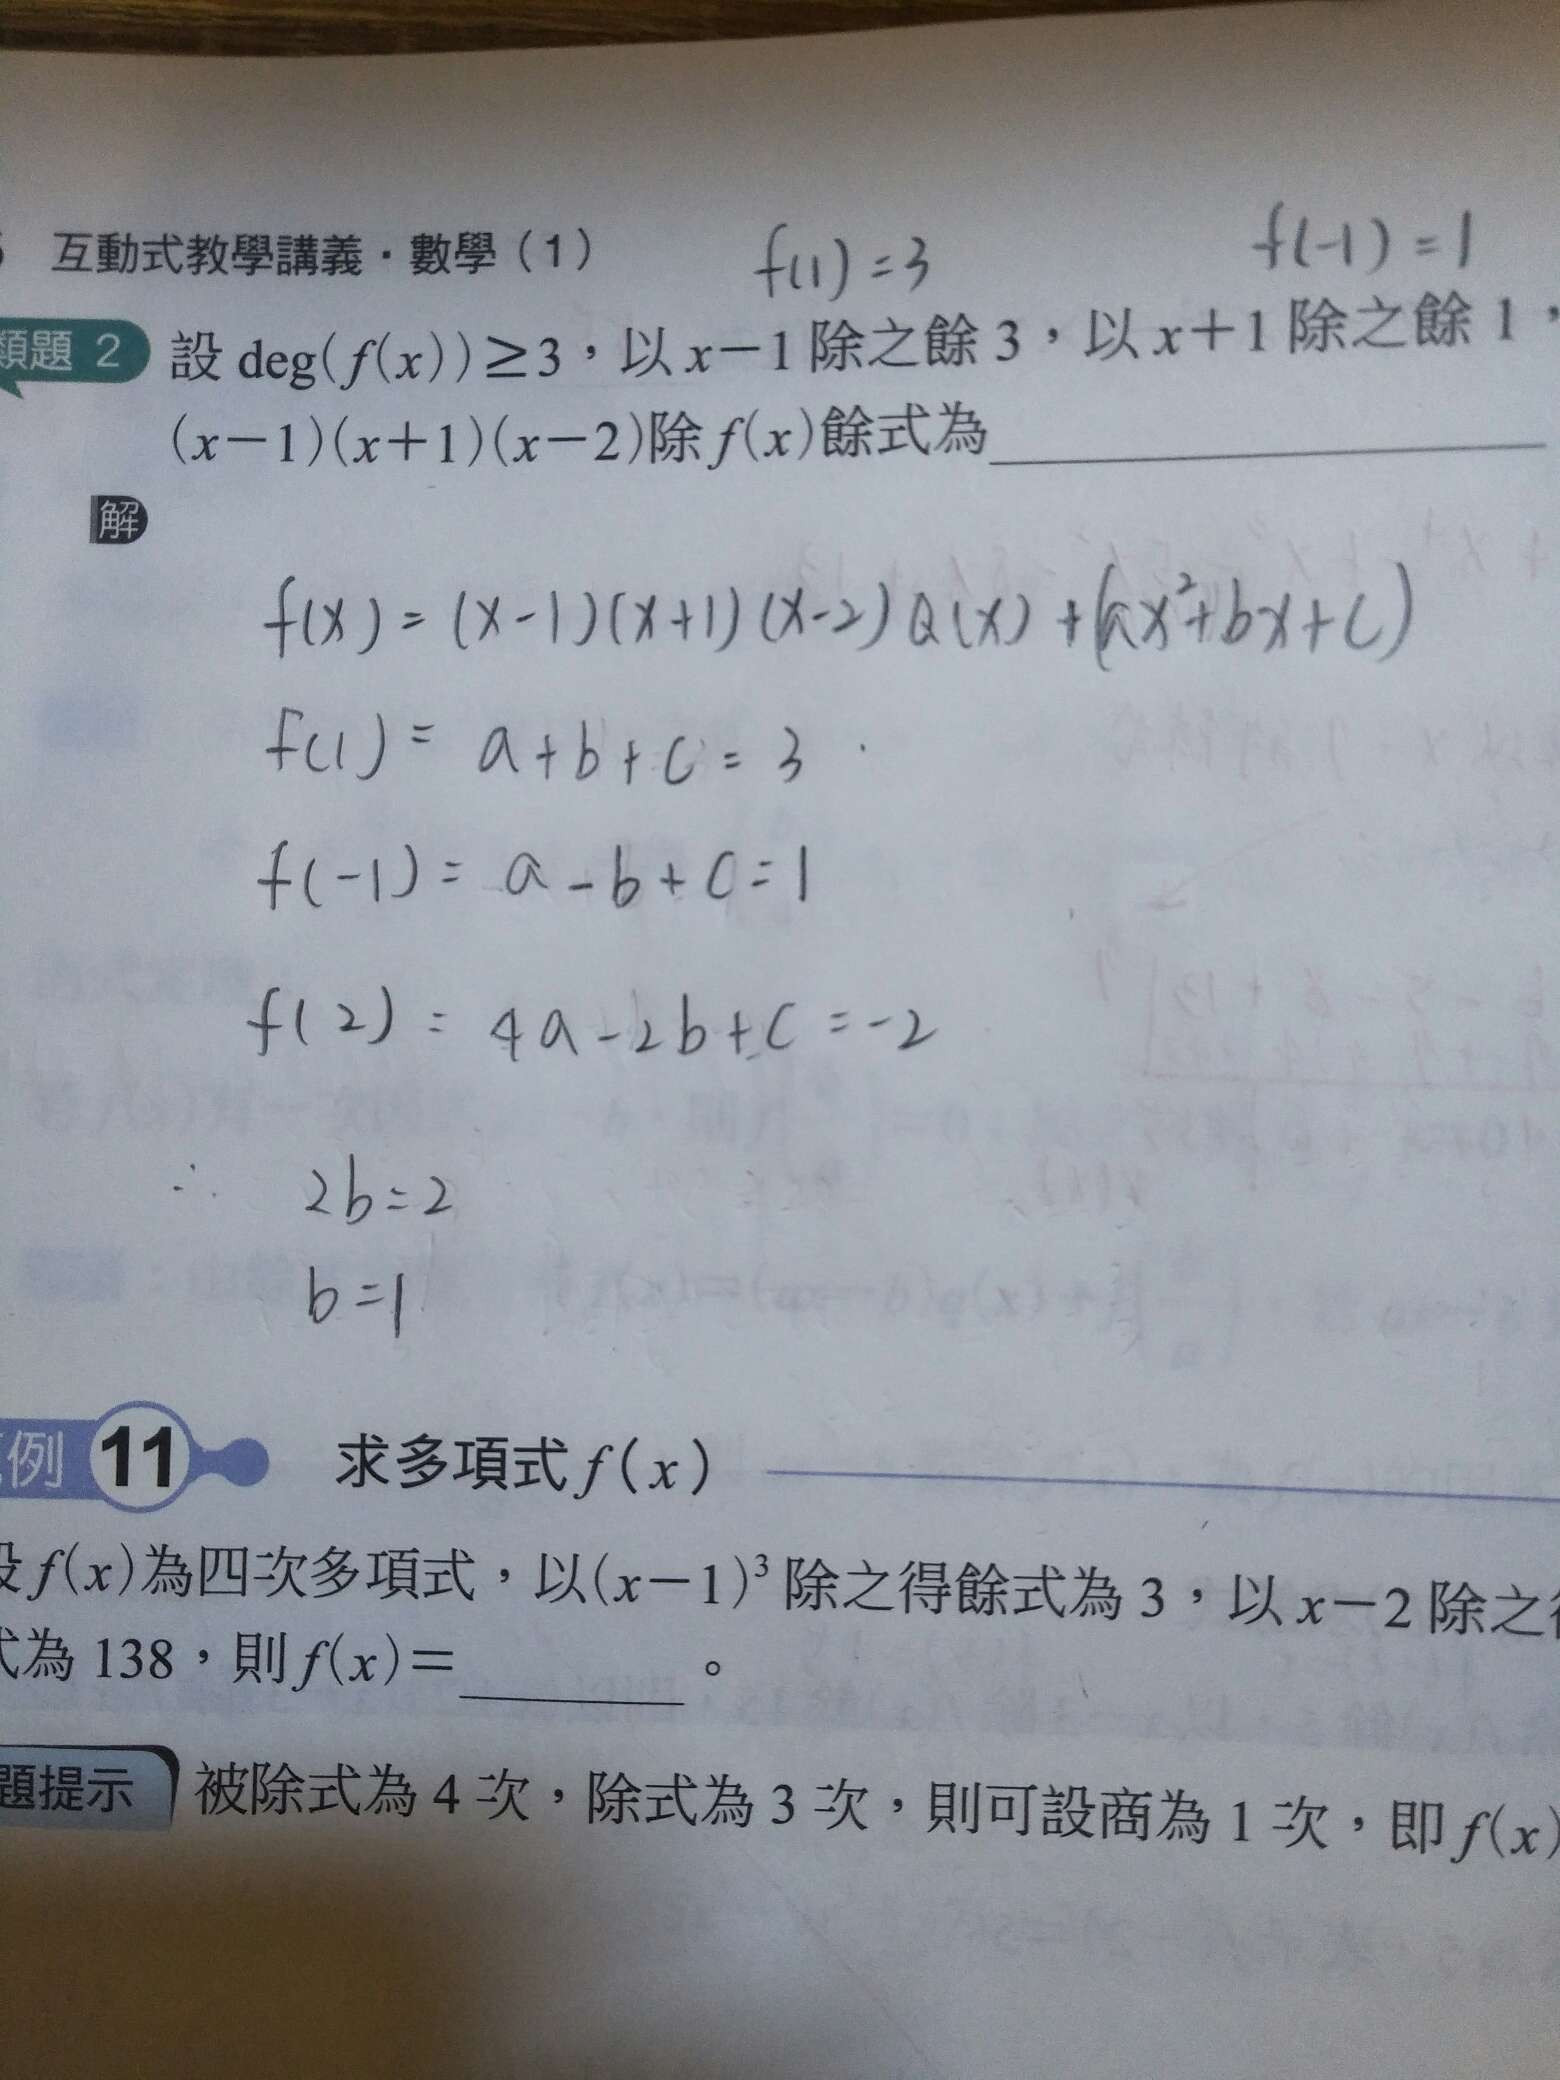 互動式教學講義・數學（1）
f(1)=3
f(-1)=1
類題 2 設 deg(f(x))≥3，以 x−1 除之餘 3，以 x+1 除之餘 1，
(x−1)(x+1)(x−2)除 f(x)餘式為
解
f(x) = (x-1)(x+1)(x-2)Q(x) + (ax²+bx+c)
f(1) = a+b+c = 3
f(-1) = a-b+c = 1
f(2) = 4a-2b+c = -2
∴ 2b=2
b=1
例 11 求多項式 f(x)
設 f(x)為四次多項式，以(x−1)³ 除之得餘式為 3，以 x−2 除之得
式為 138，則 f(x)=______。
題提示 被除式為 4 次，除式為 3 次，則可設商為 1 次，即 f(x)